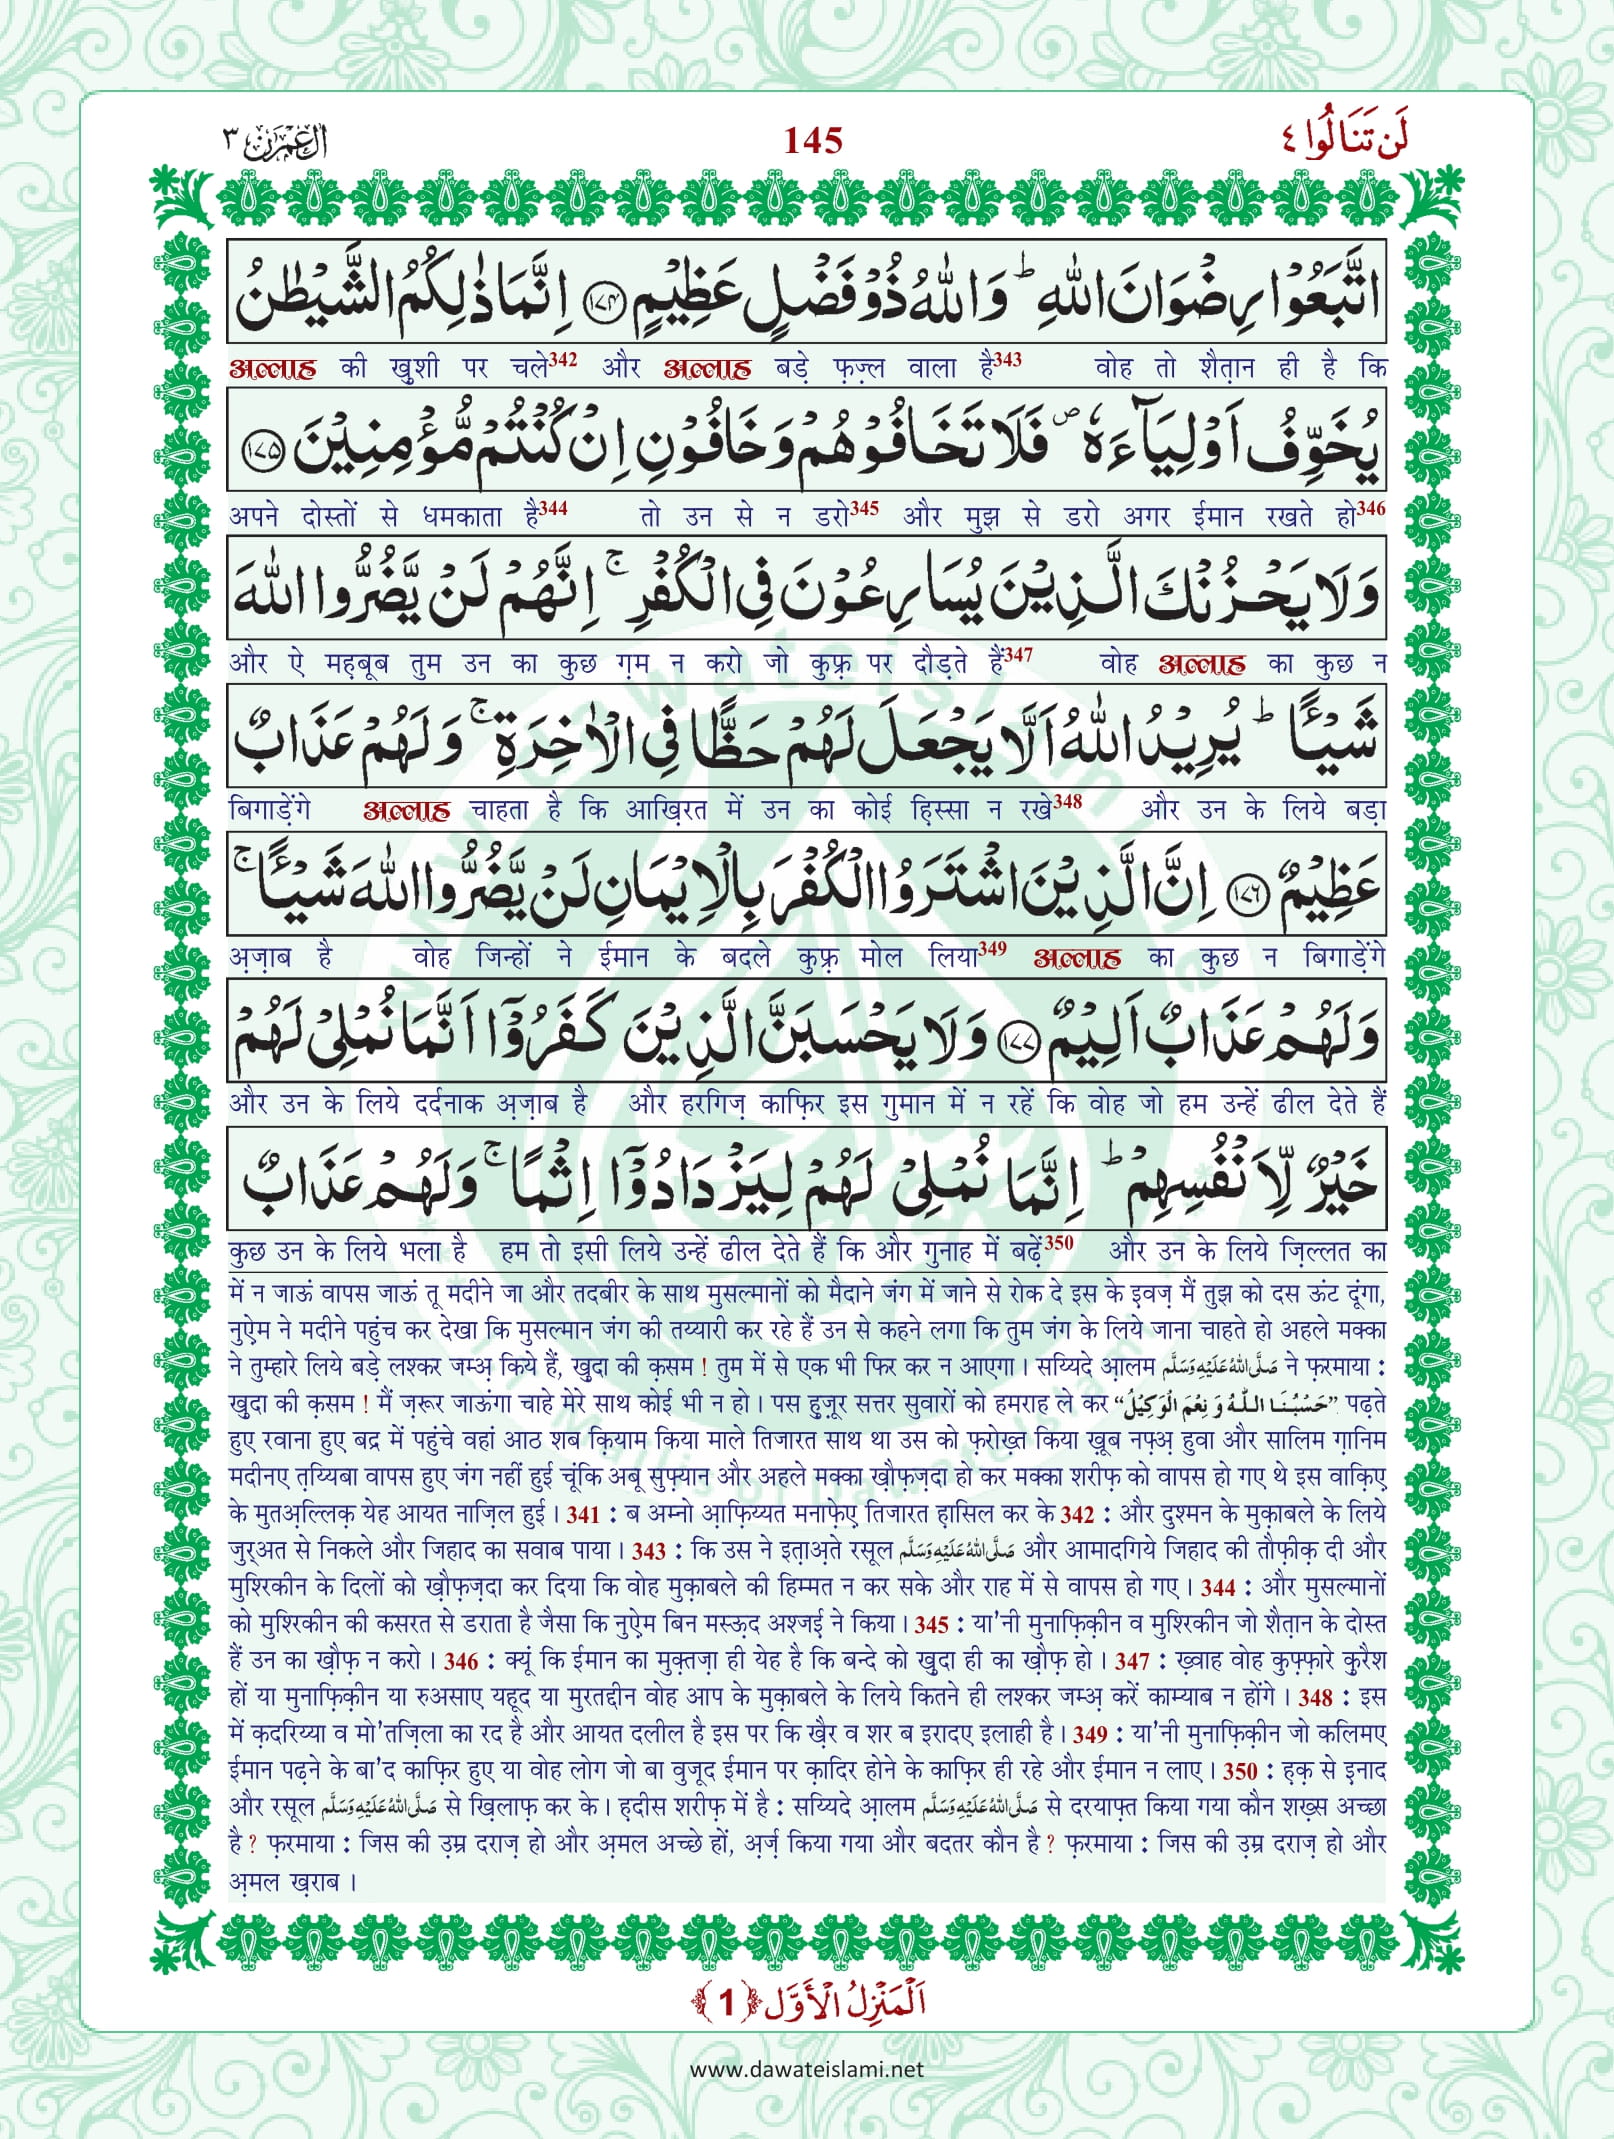 اٰلِ عِمْرٰن ٣
145
لَنْ تَنَالُوا ٤
اتَّبَعُوْا رِضْوَانَ اللّٰهِ ؕ وَاللّٰهُ ذُوْ فَضْلٍ عَظِیْمٍ ﴿۱۷۴﴾ اِنَّمَا ذٰلِكُمُ الشَّیْطٰنُ
अल्लाह की ख़ुशी पर चले342 और अल्लाह बड़े फ़ज़्ल वाला है343 वोह तो शैत़ान ही है कि
یُخَوِّفُ اَوْلِیَآءَهٗ ۪ فَلَا تَخَافُوْهُمْ وَخَافُوْنِ اِنْ كُنْتُمْ مُّؤْمِنِیْنَ ﴿۱۷۵﴾
अपने दोस्तों से धमकाता है344 तो उन से न डरो345 और मुझ से डरो अगर ईमान रखते हो346
وَلَا یَحْزُنْكَ الَّذِیْنَ یُسَارِعُوْنَ فِی الْكُفْرِ ۚ اِنَّهُمْ لَنْ یَّضُرُّوا اللّٰهَ
और ऐ मह़बूब तुम उन का कुछ ग़म न करो जो कुफ़्र पर दौड़ते हैं347 वोह अल्लाह का कुछ न
شَیْـًٔا ؕ یُرِیْدُ اللّٰهُ اَلَّا یَجْعَلَ لَهُمْ حَظًّا فِی الْاٰخِرَةِ ۚ وَلَهُمْ عَذَابٌ
बिगाड़ेंगे अल्लाह चाहता है कि आख़िरत में उन का कोई ह़िस्सा न रखे348 और उन के लिये बड़ा
عَظِیْمٌ ﴿۱۷۶﴾ اِنَّ الَّذِیْنَ اشْتَرَوُا الْكُفْرَ بِالْاِیْمَانِ لَنْ یَّضُرُّوا اللّٰهَ شَیْـًٔا ۚ
अ़ज़ाब है वोह जिन्हों ने ईमान के बदले कुफ़्र मोल लिया349 अल्लाह का कुछ न बिगाड़ेंगे
وَلَهُمْ عَذَابٌ اَلِیْمٌ ﴿۱۷۷﴾ وَلَا یَحْسَبَنَّ الَّذِیْنَ كَفَرُوْۤا اَنَّمَا نُمْلِیْ لَهُمْ
और उन के लिये दर्दनाक अ़ज़ाब है और हरगिज़ काफ़िर इस गुमान में न रहें कि वोह जो हम उन्हें ढील देते हैं
خَیْرٌ لِّاَنْفُسِهِمْ ؕ اِنَّمَا نُمْلِیْ لَهُمْ لِیَزْدَادُوْۤا اِثْمًا ۚ وَلَهُمْ عَذَابٌ
कुछ उन के लिये भला है हम तो इसी लिये उन्हें ढील देते हैं कि और गुनाह में बढ़ें350 और उन के लिये ज़िल्लत का
में न जाऊं वापस जाऊं तू मदीने जा और तदबीर के साथ मुसल्मानों को मैदाने जंग में जाने से रोक दे इस के इवज़ मैं तुझ को दस ऊंट दूंगा,
नुऐ़म ने मदीने पहुंच कर देखा कि मुसल्मान जंग की तय्यारी कर रहे हैं उन से कहने लगा कि तुम जंग के लिये जाना चाहते हो अहले मक्का
ने तुम्हारे लिये बड़े लश्कर जम्अ़ किये हैं, ख़ुदा की क़सम ! तुम में से एक भी फिर कर न आएगा । सय्यिदे आ़लम صَلَّى اللّٰهُ عَلَيْهِ وَسَلَّم ने फ़रमाया :
ख़ुदा की क़सम ! मैं ज़रूर जाऊंगा चाहे मेरे साथ कोई भी न हो । पस हुज़ूर सत्तर सुवारों को हमराह ले कर ”حَسْبُنَا اللّٰهُ وَ نِعْمَ الْوَكِيْلُ“ पढ़ते
हुए रवाना हुए बद्र में पहुंचे वहां आठ शब क़ियाम किया माले तिजारत साथ था उस को फ़रोख़्त किया ख़ूब नफ़्अ़ हुवा और सालिम ग़ानिम
मदीनए त़य्यिबा वापस हुए जंग नहीं हुई चूंकि अबू सुफ़्यान और अहले मक्का ख़ौफ़ज़दा हो कर मक्का शरीफ़ को वापस हो गए थे इस वाक़िए़
के मुतअ़ल्लिक़ येह आयत नाज़िल हुई । 341 : ब अम्नो आ़फ़िय्यत मनाफ़ेए़ तिजारत ह़ासिल कर के 342 : और दुश्मन के मुक़ाबले के लिये
जुर्अत से निकले और जिहाद का सवाब पाया । 343 : कि उस ने इत़ाअ़ते रसूल صَلَّى اللّٰهُ عَلَيْهِ وَسَلَّم और आमादगिये जिहाद की तौफ़ीक़ दी और
मुश्रिकीन के दिलों को ख़ौफ़ज़दा कर दिया कि वोह मुक़ाबले की हिम्मत न कर सके और राह में से वापस हो गए । 344 : और मुसल्मानों
को मुश्रिकीन की कसरत से डराता है जैसा कि नुऐ़म बिन मस्ऊ़द अश्जई ने किया । 345 : या'नी मुनाफ़िक़ीन व मुश्रिकीन जो शैत़ान के दोस्त
हैं उन का ख़ौफ़ न करो । 346 : क्यूं कि ईमान का मुक़्तज़ा ही येह है कि बन्दे को ख़ुदा ही का ख़ौफ़ हो । 347 : ख़्वाह वोह कुफ़्फ़ारे क़ुरैश
हों या मुनाफ़िक़ीन या रुअसाए यहूद या मुरतद्दीन वोह आप के मुक़ाबले के लिये कितने ही लश्कर जम्अ़ करें काम्याब न होंगे । 348 : इस
में क़दरिय्या व मो'तज़िला का रद है और आयत दलील है इस पर कि ख़ैर व शर ब इरादए इलाही है । 349 : या'नी मुनाफ़िक़ीन जो कलिमए
ईमान पढ़ने के बा'द काफ़िर हुए या वोह लोग जो बा वुजूद ईमान पर क़ादिर होने के काफ़िर ही रहे और ईमान न लाए । 350 : ह़क़ से इनाद
और रसूल صَلَّى اللّٰهُ عَلَيْهِ وَسَلَّم से ख़िलाफ़ कर के । ह़दीस शरीफ़ में है : सय्यिदे आ़लम صَلَّى اللّٰهُ عَلَيْهِ وَسَلَّم से दरयाफ़्त किया गया कौन शख़्स अच्छा
है ? फ़रमाया : जिस की उ़म्र दराज़ हो और अ़मल अच्छे हों, अ़र्ज़ किया गया और बदतर कौन है ? फ़रमाया : जिस की उ़म्र दराज़ हो और
अ़मल ख़राब ।
اَلْمَنْزِلُ الْاَوَّل ﴿1﴾
www.dawateislami.net